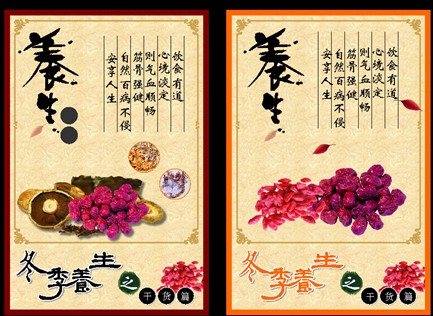 養生
饮食有道
心境淡定
则气血顺畅
筋骨强健
自然百病不侵
安享人生
冬季養生之
干货篇
養生
饮食有道
心境淡定
则气血顺畅
筋骨强健
自然百病不侵
安享人生
冬季養生之
干货篇